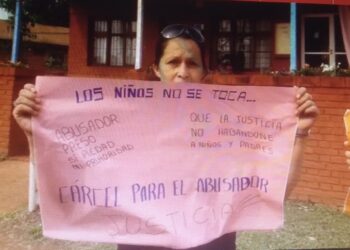 LOS NIÑOS NO SE TOCA...
ABUSADOR
PRESO
SI PIEDAD
NI IMPUNIDAD
QUE LA JUSTICIA
NO HABANDONE
A NIÑOS Y PADRES
CARCEL PARA EL ABUSADOR
JUSTICIA